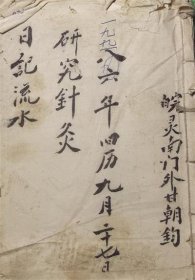 皖灵南门外甘朝钧
一九八六年历九月二十七日
研究針灸
日記流水